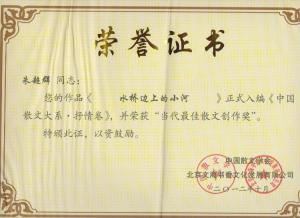 荣誉证书
朱超群 同志:
您的作品《 水桥边上的小河 》正式入编《中国
散文大系·抒情卷》,并荣获“当代最佳散文创作奖”。
特颁此证,以资鼓励。
中国散文学会
二〇一二年十月